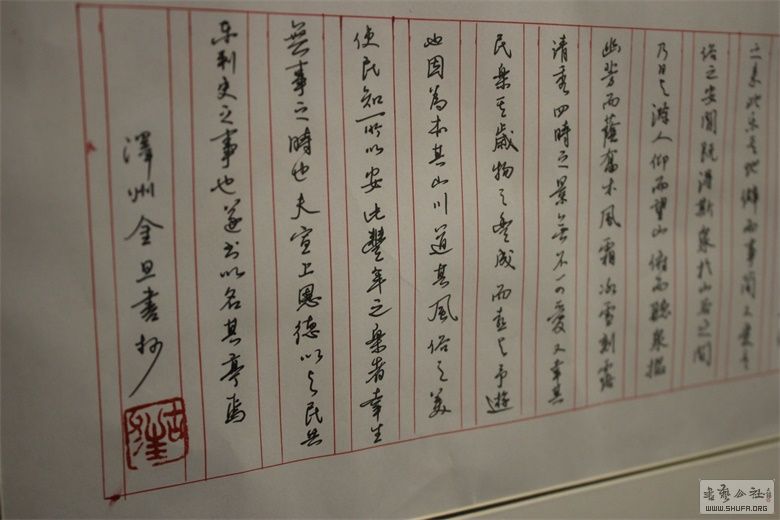 之來此樂其地僻而事簡又愛其
俗之安閒既得斯泉於山谷之間
乃日与滁人仰而望山俯而聽泉掇
幽芳而蔭喬木風霜冰雪刻露
清秀四時之景無不可愛又幸其
民樂其歲物之豐成而喜与予遊
也因為本其山川道其風俗之美
使民知所以安此豐年之樂者幸生
無事之時也夫宣上恩德以与民共
樂刺史之事也遂書以名其亭焉
澤州金旦書抄
書藝公社
WWW.SHUFA.ORG